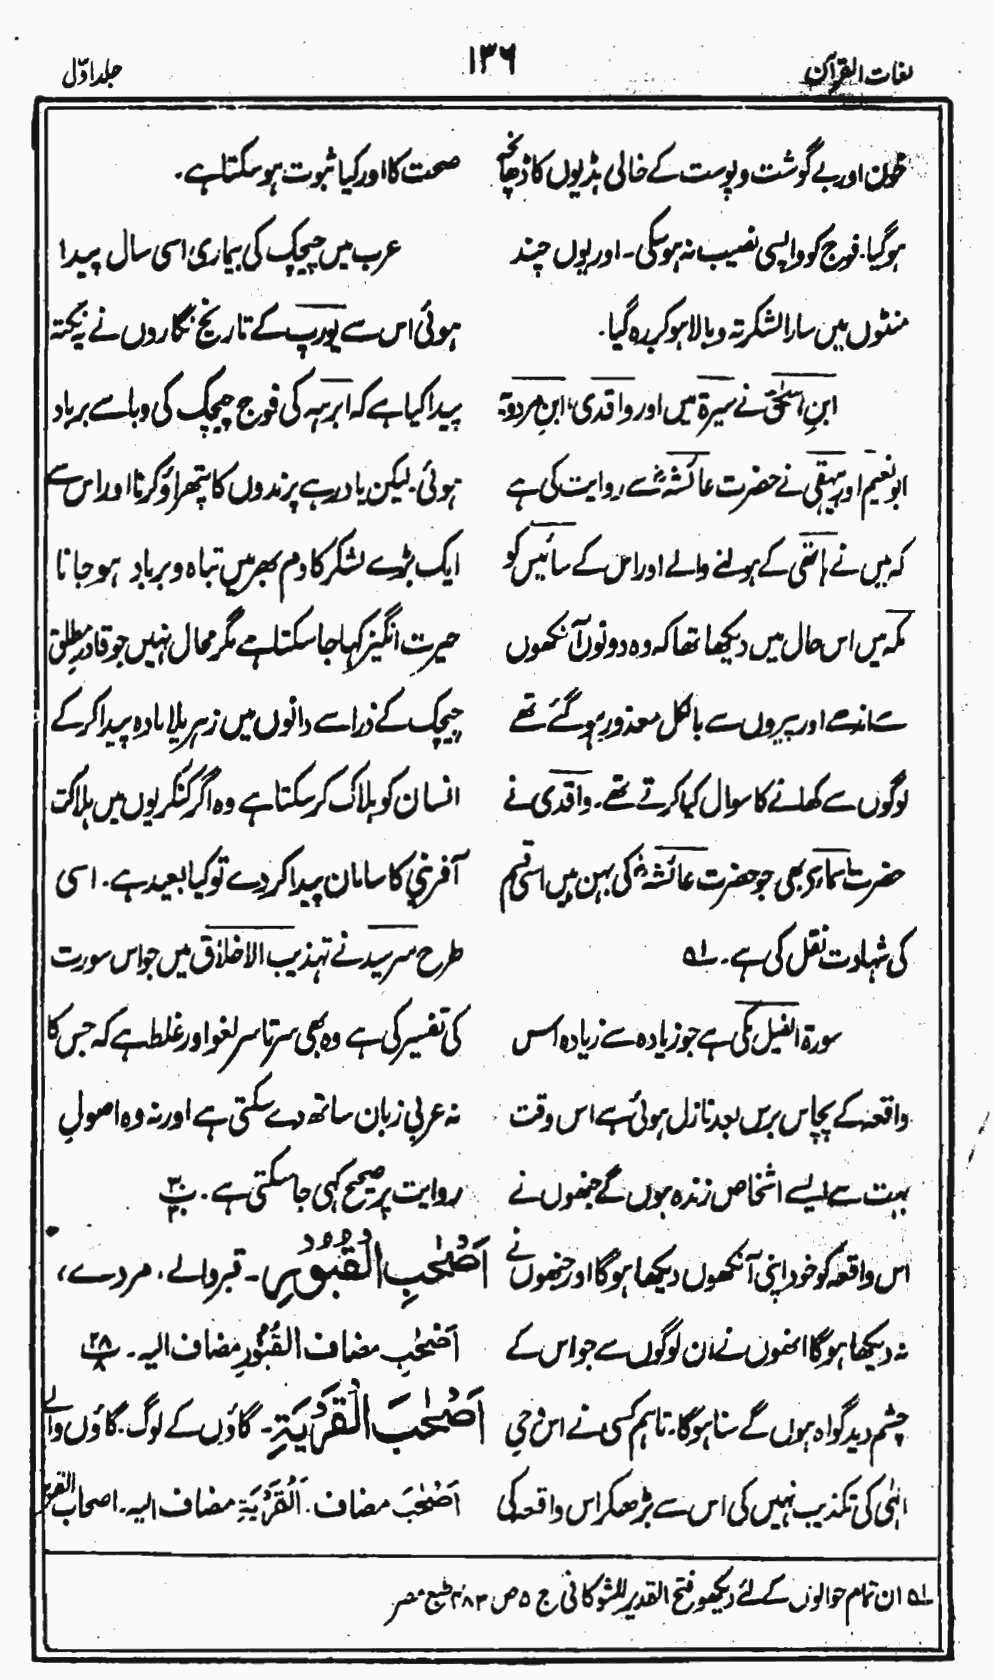 لغات القرآن
۱۳۶
جلد اوّل
خون اور بے گوشت و پوست کے خالی ہڈیوں کا ڈھانچہ
ہوگیا۔ فوج کو واپسی نصیب نہ ہوسکی۔ اور یوں چند
منٹوں میں سارا لشکر تہ و بالا ہوکر رہ گیا۔
ابنِ اسحٰق نے سیرۃ میں اور واقدی، ابنِ مردویہ
ابونعیم اور بیہقی نے حضرت عائشہؓ سے روایت کی ہے
کہ میں نے ہاتھی کے ہولنے والے اور اس کے سائیس کو
مکہ میں اس حال میں دیکھا تھا کہ وہ دونوں آنکھوں
سے اندھے اور پیروں سے بالکل معذور ہوگئے تھے
لوگوں سے کھانے کا سوال کیا کرتے تھے۔ واقدی نے
حضرت اسماءؓ بھی جو حضرت عائشہؓ کی بہن ہیں اسی قسم
کی شہادت نقل کی ہے۔ ؎۱
سورۃ الفیل مکی ہے جو زیادہ سے زیادہ اس
واقعہ کے پچاس برس بعد نازل ہوئی ہے اس وقت
بہت سے ایسے اشخاص زندہ ہوں گے جنھوں نے
اس واقعہ کو خود اپنی آنکھوں دیکھا ہوگا اور جنھوں نے
نہ دیکھا ہوگا انھوں نے ان لوگوں سے جو اس کے
چشم دید گواہ ہوں گے سنا ہوگا۔ تاہم کسی نے اس وحیِ
الٰہی کی تکذیب نہیں کی اس سے بڑھ کر اس واقعہ کی
صحت کا اور کیا ثبوت ہوسکتا ہے۔
عرب میں چیچک کی بیماری اسی سال پیدا
ہوئی اس سے یورپ کے تاریخ نگاروں نے یہ نکتہ
پیدا کیا ہے کہ ابرہہ کی فوج چیچک کی وبا سے برباد
ہوئی۔ لیکن یاد رہے پرندوں کا پتھراؤ کرنا اور اس سے
ایک بڑے لشکر کا دم بھر میں تباہ و برباد ہوجانا
حیرت انگیز کہا جاسکتا ہے مگر محال نہیں جو قادرِ مطلق
چیچک کے ذرا سے دانوں میں زہریلا مادہ پیدا کرکے
انسان کو ہلاک کرسکتا ہے وہ اگر کنکریوں میں ہلاکت
آفرینی کا سامان پیدا کردے تو کیا بعید ہے۔ اسی
طرح سرسید نے تہذیب الاخلاق میں جو اس سورت
کی تفسیر کی ہے وہ بھی سرتاسر لغو اور غلط ہے کہ جس کا
نہ عربی زبان ساتھ دے سکتی ہے اور نہ وہ اصولِ
روایت پر صحیح کہی جاسکتی ہے۔ پ۳۰
اَصْحٰبِ الْقُبُوْرِ۔ قبر والے، مردے،
اَصْحٰبِ مضاف الْقُبُوْرِ مضاف الیہ۔ پ۲۸ ۸
اَصْحٰبَ الْقَرْیَۃِ۔ گاؤں کے لوگ۔ گاؤں والے
اَصْحٰبَ مضاف۔ اَلْقَرْیَۃِ مضاف الیہ۔ اصحاب القریہ
؎۱ ان تمام حوالوں کے لئے دیکھو فتح القدیر للشوکانی ج ۵ ص ۴۸۳ طبع مصر